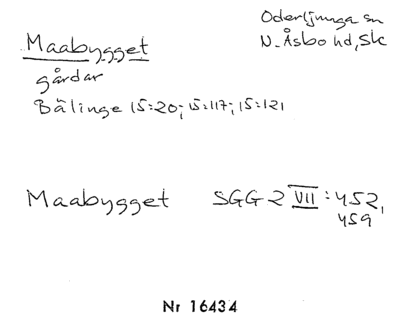 Maabygget
Oderljunga sn
N. Åsbo hd, Sk
gårdar
Bälinge 15:20; 15:117; 15:121
Maabygget SGG 2 VII : 452,
459
Nr 16434